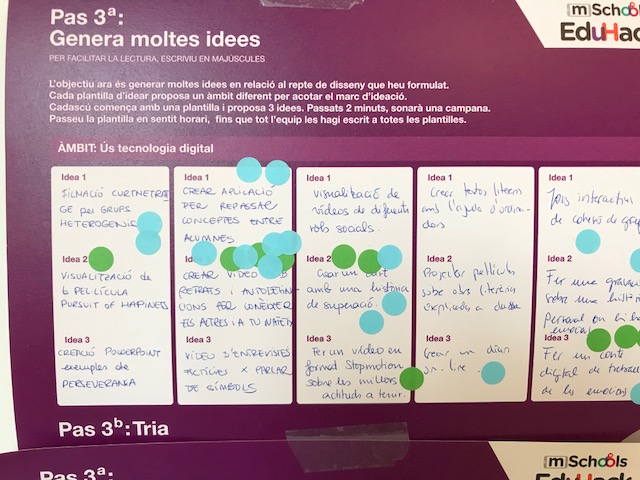 Pas 3ª:
Genera moltes idees
PER FACILITAR LA LECTURA, ESCRIVIU EN MAJÚSCULES
mSchools
EduHack
L'objectiu ara és generar moltes idees en relació al repte de disseny que heu formulat.
Cada plantilla d'idear proposa un àmbit diferent per acotar el marc d'ideació.
Cadascú comença amb una plantilla i proposa 3 idees. Passats 2 minuts, sonarà una campana.
Passeu la plantilla en sentit horari, fins que tot l'equip les hagi escrit a totes les plantilles.
ÀMBIT: Ús tecnologia digital
Idea 1
FILMACIÓ CURTMETRAT
GE per GRUPS
HETEROGENIS
Idea 2
VISUALITZACIÓ de
PEL·LÍCULA
PURSUIT OF HAPINESS
Idea 3
CREACIÓ POWERPOINT
exemples de
PERSEVERANÇA
Idea 1
CREAR APLICACIÓ
PER REPASSAR
CONCEPTES ENTRE
ALUMNES
CREAR VIDEO
RETRATS I
CIONS PER CONEIXER
ELS ALTRES I A TU MATEIX
Idea 3
VIDEO D'ENTREVISTES
FICTÍCIES X PARLAR
DE SÍMBOLS
Idea 1
Visualització de
vídeos de diferents
rols socials.
Idea 2
Crear un
amb una història
de superació.
Idea 3
Fer un vídeo en
format Stopmotion
sobre les millors
actituds a tenir.
Idea 1
Crear textos literaris
amb l'ajuda d'ordina-
dors
Idea 2
Projectar pel·lícules
sobre obres literàries
explicades a classe
Idea 3
Crear un diari
on-line.
Idea 1
Jocs interactius
de cohesió de grup
Idea 2
Fer una
sobre una història
personal
emocional
Idea 3
Fer un conte
digital de
de les emocions
Pas 3ᵇ: Tria
Pas 3ª:
mSchools
EduHack